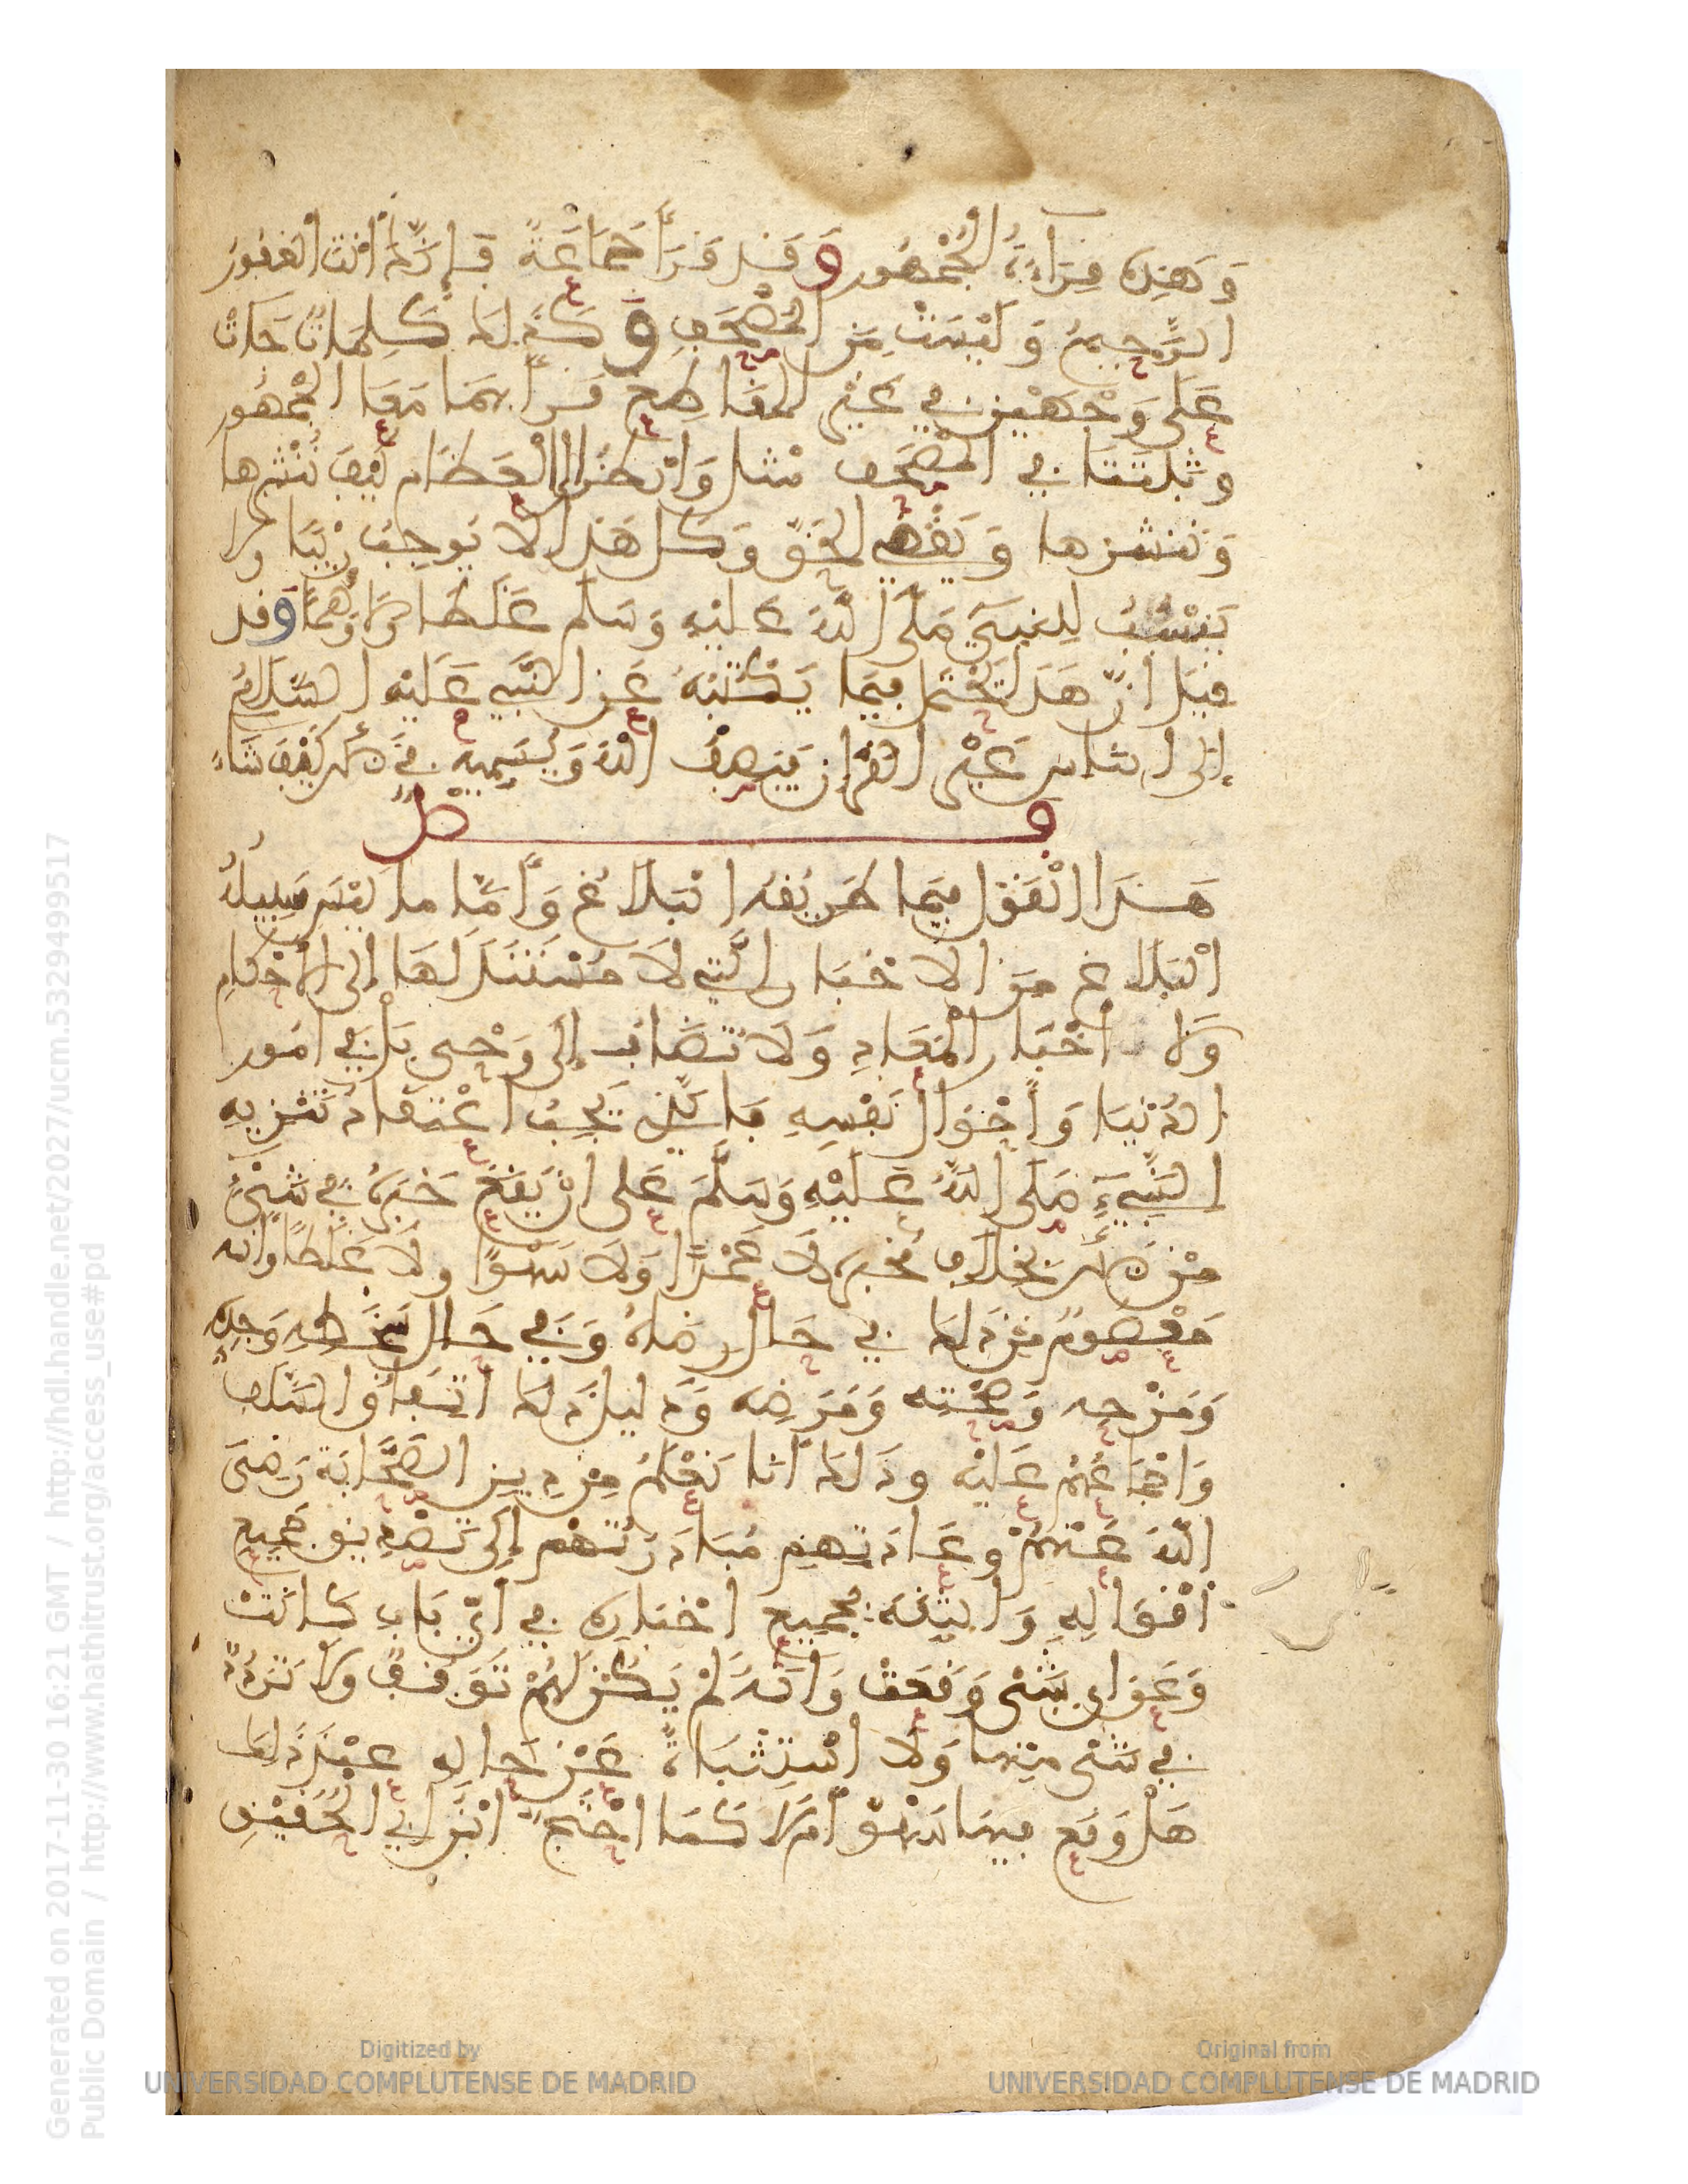 وَهَذِه قِرَاءَةُ الجُمْهُور وَقَد قَرَأَ جَمَاعَةٌ فَإِنَّكَ أَنْتَ الْغَفُورُ
الرَّحِيمُ وَلَيْسَتْ مِنَ المُصْحَفِ وَكَذَلِكَ كَلِمَاتٌ جَاءَتْ
عَلَى وَجْهَيْنِ فِي غَيْرِ المَقَاطِعِ قَرَأَ بِهِمَا مَعًا الجُمْهُور
وثَبَتَتَا فِي المُصْحَف مثل وَانْظُرْ إِلَى الْعِظَام كَيْفَ نُنْشِرُها
وَنُنْشِزها وَيَقْضِي الحَقَّ وَكل هَذَا لا يُوجِبُ رَيْبًا ولا
يَنْسُبُ لِلنبِيِّ صَلَّى اللَّهُ عَلَيْهِ وَسَلم غَلَطًا وَلا وَهْمًا وَقد
قِيلَ انّ هَذَا يَحْتَمل فِيمَا يَكْتُبُهُ عَنِ النَّبِي عَلَيْه السَّلَامُ
إلى الناس غَيْر القُرْآن فَيَصِفُ اللَّهَ وَيُسَمِّيهِ فِي ذَلِكَ كَيْفَ شَاءَ
فصل
هَذَا الْقَوْل فِيمَا طَرِيقُهُ الْبَلَاغُ وَأَمَّا ما لَيْسَ سَبِيلُهُ
الْبَلَاغ مِنَ الاخْبَارِ الَّتِي لَا مُسْتَنَدَ لَهَا إِلَى الأَحْكَامِ
وَلا أَخْبَار الْمَعَادِ وَلَا تُضَافُ إِلَى وَحْي بَلْ فِي امُور
الدُنْيَا وَأَحْوَالِ نَفْسِهِ فَالَّذِي يَجِبُ اعْتِقَادُه تَنْزِيهِ
النَّبِيءِ صَلَى اللَّهُ عَلَيْهِ وَسَلَّمَ عَلى انْ يَقَعَ خَبَرُهُ فِي شَيْءٍ
مِنْ ذَلِكَ بِخِلَافِ مُخْبَرِهِ لَا عَمْدًا وَلَا سَهْوًا ولَا غَلَطًا وأنه
مَعْصُومٌ مِنْ ذَلِكَ فِي حَالِ رِضَاهُ وَفِي حَال سَخَطِهِ وَجِدِّهِ
وَمَزْحِه وَصِحَّتِه وَمَرَضِه وَدَلِيلُ ذَلِكَ اتِّفَاقُ السَّلَف
وَإجْمَاعُهُمْ عَلَيْه وذَلكَ أَنَّا نَعْلَمُ مِنْ دِينِ الصَّحَابَة رَضِيَ
اللَّهُ عَنْهُمْ وعَادَتِهِم مُبَادَرَتَهُم إِلَى تَصْدِيقِ جَمِيعِ
أَقْوَالِهِ وَالثِّقَةِ بِجَمِيعِ اخْبَارِهِ فِي أَيِّ بَابٍ كَانَتْ
وَعَن اي شَيْءٍ وَقَعَتْ وَانَّهُ لَمْ يَكُنْ لَهُمْ تَوَقُّفٌ وَلَا تَرَدُّدٌ
فِي شَيْءٍ مِنْهَا وَلَا اسْتِثْبَاتٌ عَنْ حَالِهِ عِنْدَ ذَلِكَ
هَلْ وَقَع فِيهَا سَهْوٌ أَمْ لَا كَمَا احْتَجَّ ابْنُ أَبِي الحُقَيْقِ
Generated on 2017-11-30 16:21 GMT / http://hdl.handle.net/2027/ucm.5329499517
Public Domain / http://www.hathitrust.org/access_use#pd
Digitized by
UNIVERSIDAD COMPLUTENSE DE MADRID
Original from
UNIVERSIDAD COMPLUTENSE DE MADRID